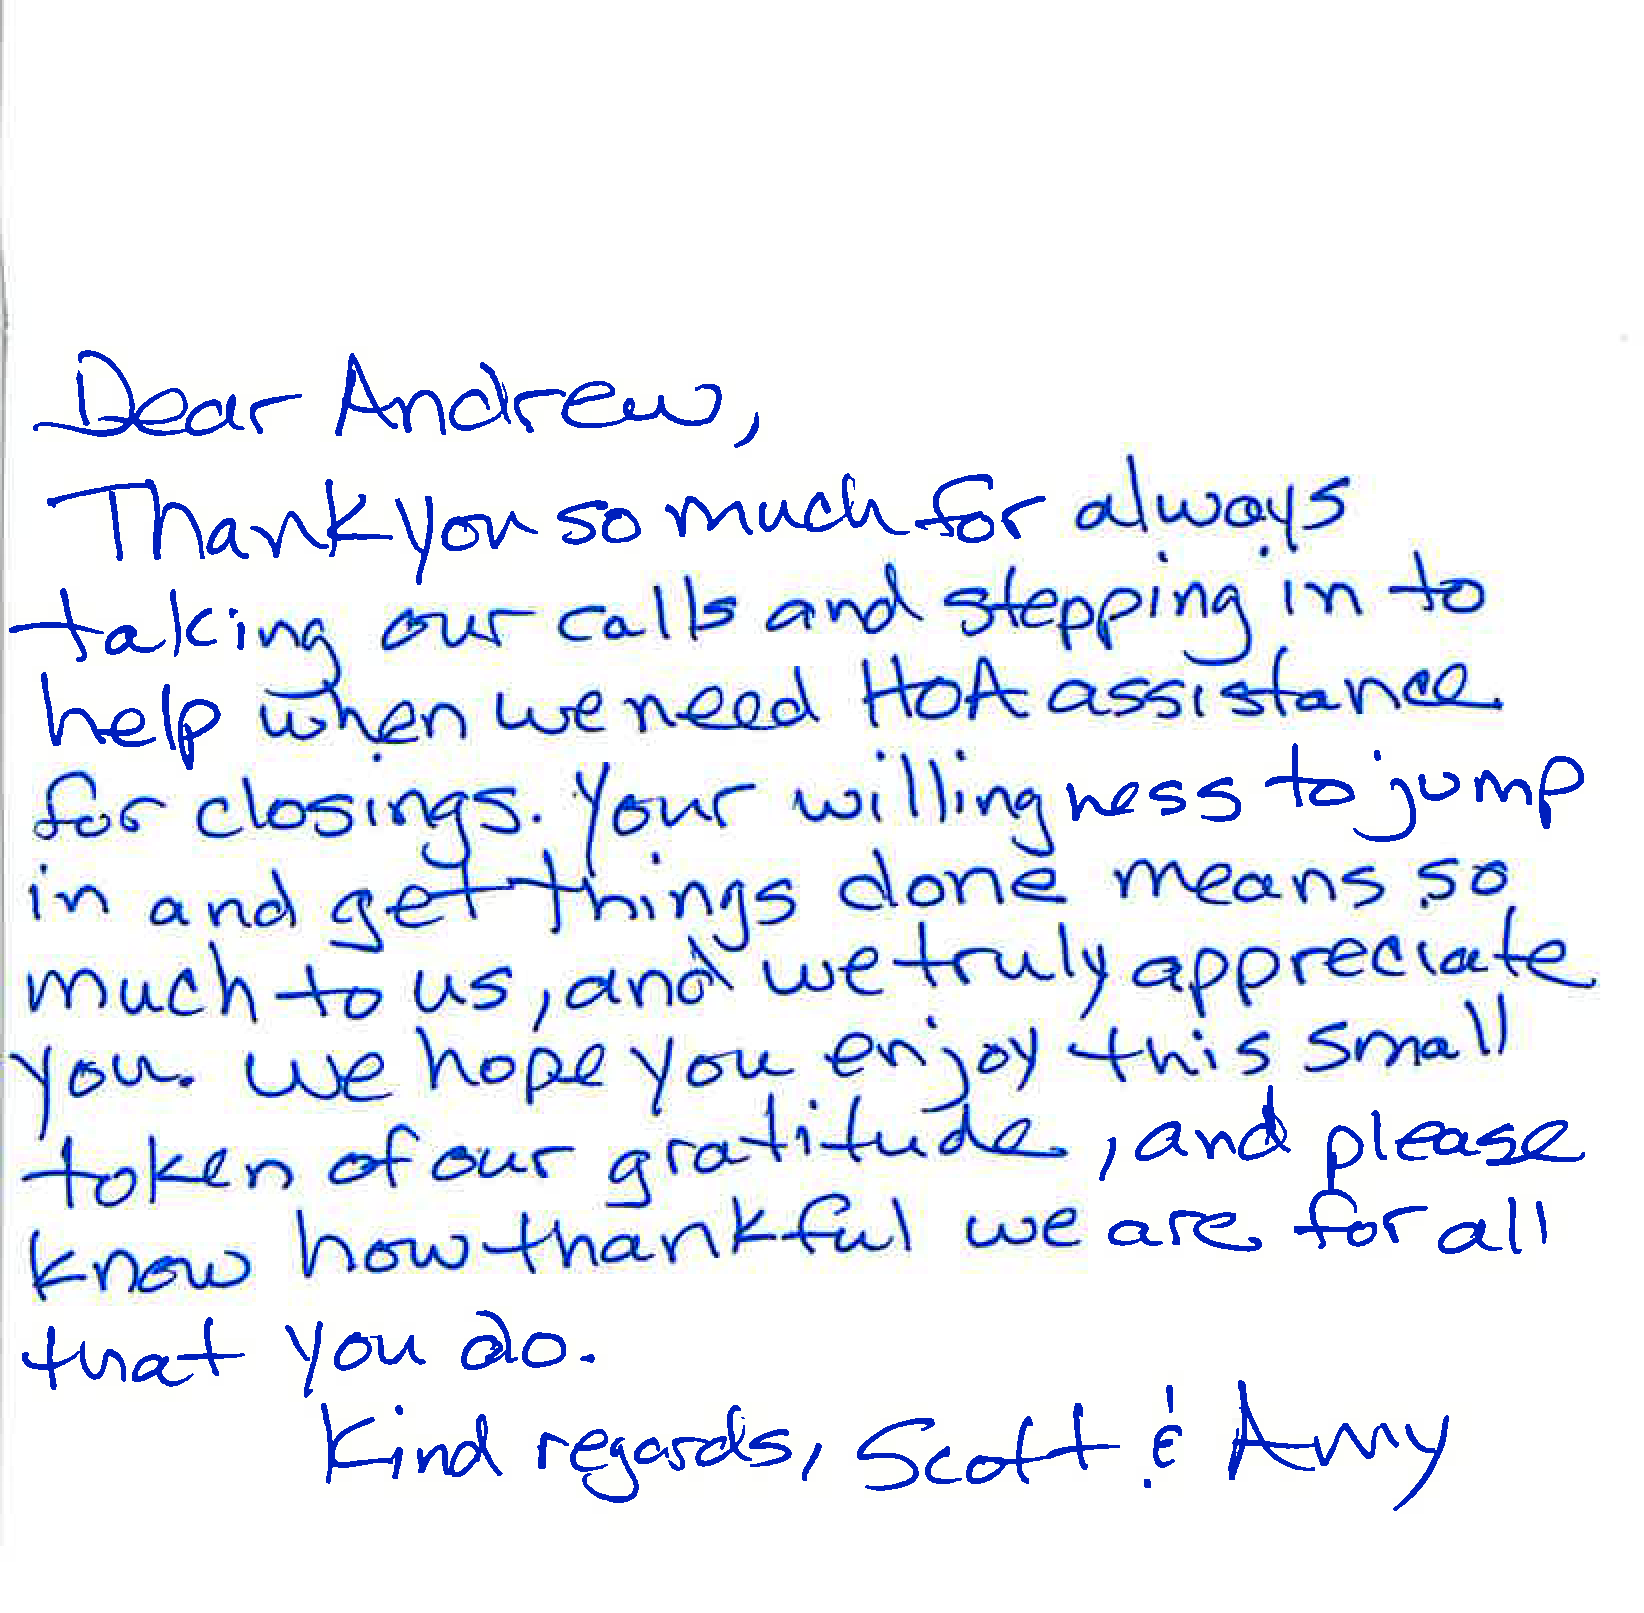 Dear Andrew,
Thank you so much for always
taking our calls and stepping in to
help when we need HOA assistance
for closings. Your willingness to jump
in and get things done means so
much to us, and we truly appreciate
you. We hope you enjoy this small
token of our gratitude, and please
know how thankful we are for all
that you do.
Kind regards, Scott & Amy